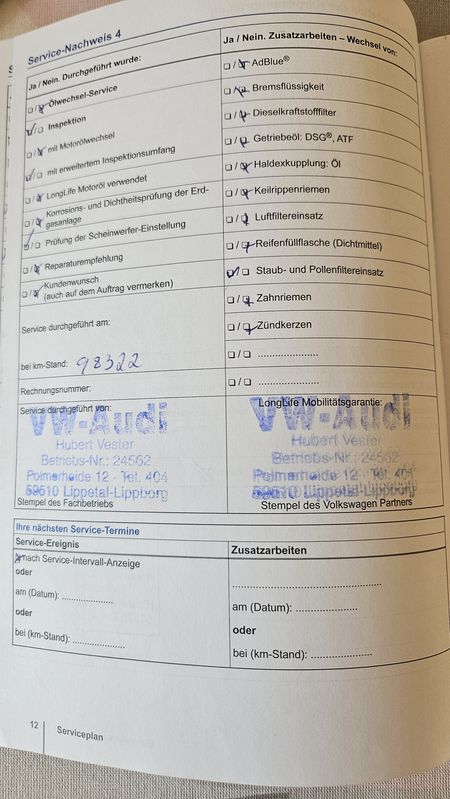 Service-Nachweis 4
Ja / Nein. Durchgeführt wurde:
Ölwechsel-Service
Inspektion
mit Motorölwechsel
mit erweitertem Inspektionsumfang
LongLife Motoröl verwendet
Korrosions- und Dichtheitsprüfung der Erd-
gasanlage
Prüfung der Scheinwerfer-Einstellung
Reparaturempfehlung
Kundenwunsch
(auch auf dem Auftrag vermerken)
Service durchgeführt am:
bei km-Stand: 98322
Rechnungsnummer:
Service durchgeführt von:
VW-Audi
Hubert Vester
Betriebs-Nr.: 24562
Poimerheide 12 - Tel. 404
59510 Lippetal-Lippborg
Stempel des Fachbetriebs
Ja / Nein. Zusatzarbeiten – Wechsel von:
AdBlue®
Bremsflüssigkeit
Dieselkraftstofffilter
Getriebeöl: DSG®, ATF
Haldexkupplung: Öl
Keilrippenriemen
Luftfiltereinsatz
Reifenfüllflasche (Dichtmittel)
Staub- und Pollenfiltereinsatz
Zahnriemen
Zündkerzen
.....................
.....................
LongLife Mobilitätsgarantie:
VW-Audi
Hubert Vester
Betriebs-Nr.: 24562
Poimerheide 12 - Tel. 404
59510 Lippetal-Lippborg
Stempel des Volkswagen Partners
Ihre nächsten Service-Termine
Service-Ereignis
nach Service-Intervall-Anzeige
oder
am (Datum): .................
oder
bei (km-Stand): .................
Zusatzarbeiten
..................................................
am (Datum): ....................
oder
bei (km-Stand): ....................
12
Serviceplan